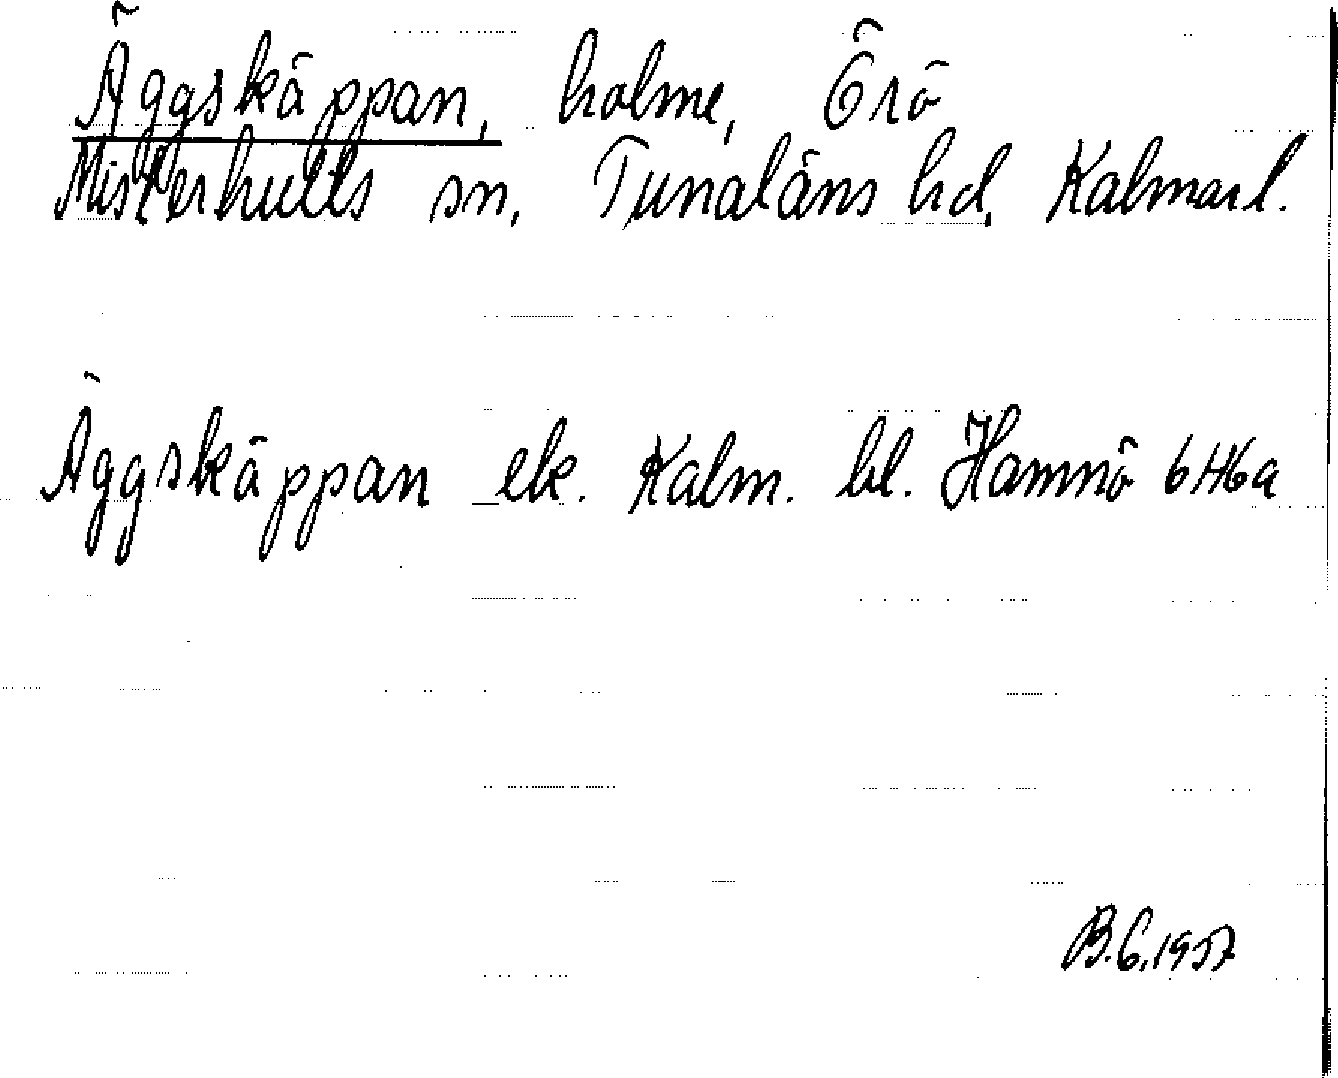 Äggskäppan, holme, Örö
Misterhults sn, Tunaläns hd, Kalmar l.
Äggskäppan ek. Kalm. bl. Hamnö 6H6a
B.G. 1957